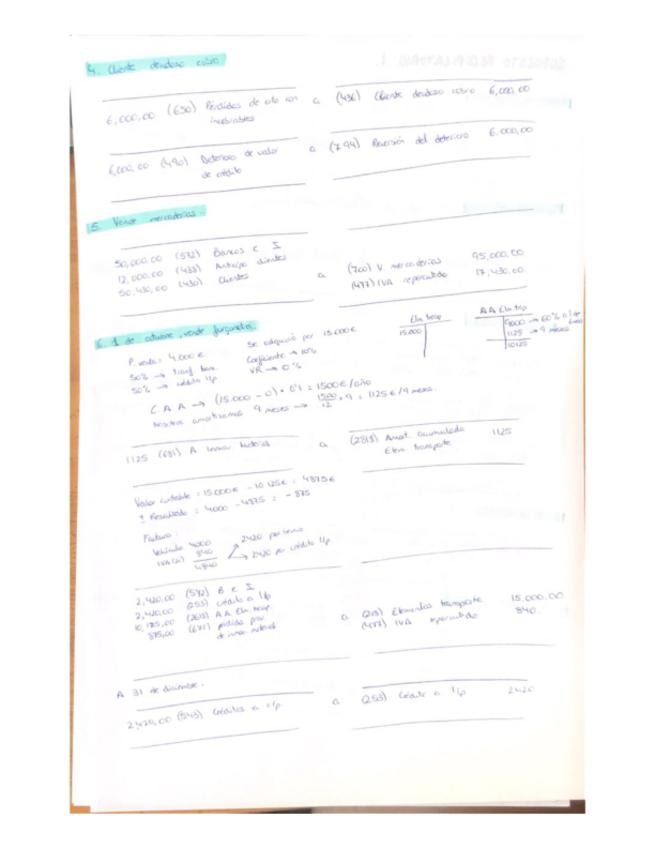 4. Cliente dudoso cobro
6,000,00 (650) Pérdidas de cto com a (436) Cliente dudoso cobro 6,000,00
incobrables
6,000,00 (490) Deterioro de valor a (794) Reversión del deterioro 6.000,00
de crédito
5. Vende mercaderías.
50,000.00 (572) Bancos e I
12,000.00 (438) Anticipo clientes a (700) V. mercaderías 95,000,00
50,430,00 (430) Clientes (477) IVA repercutido 17,430,00
6. 1 de octubre, vende furgoneta.
P. venta: 4,000 € Se adquirió por 15.000€
50% → transf banc. Coeficiente → 10%
50% → crédito l/p VR → 0%
Elm transp
15.000
AA Elm trap
9000 → 60%
1125 → 9 meses
10125
C.A.A → (15.000 - 0) · 0'1 = 1500€/año
Nosotros amortizamos 9 meses → 1500/12 · 9 = 1125€/9 meses.
1125 (681) A. Inmov. Material a (2818) Amort. acumulada 1125
Elem. transporte
Valor contable = 15.000€ - 10.125€ = 4875€
Resultado = 4000 - 4875 = - 875
Factura:
Vehículo 4000 2420 por banco
IVA 840
4840 2420 por crédito l/p.
2,420,00 (572) B e I
2,420,00 (253) crédito a l/p a (218) Elementos transporte 15,000,00
10,125,00 AA Elm. transp. (477) IVA repercutido 840.
875,00 (671) pérdida proc
de inmov. material
A 31 de diciembre.
2,420,00 (543) Créditos a c/p a (253) Crédito a l/p 2420